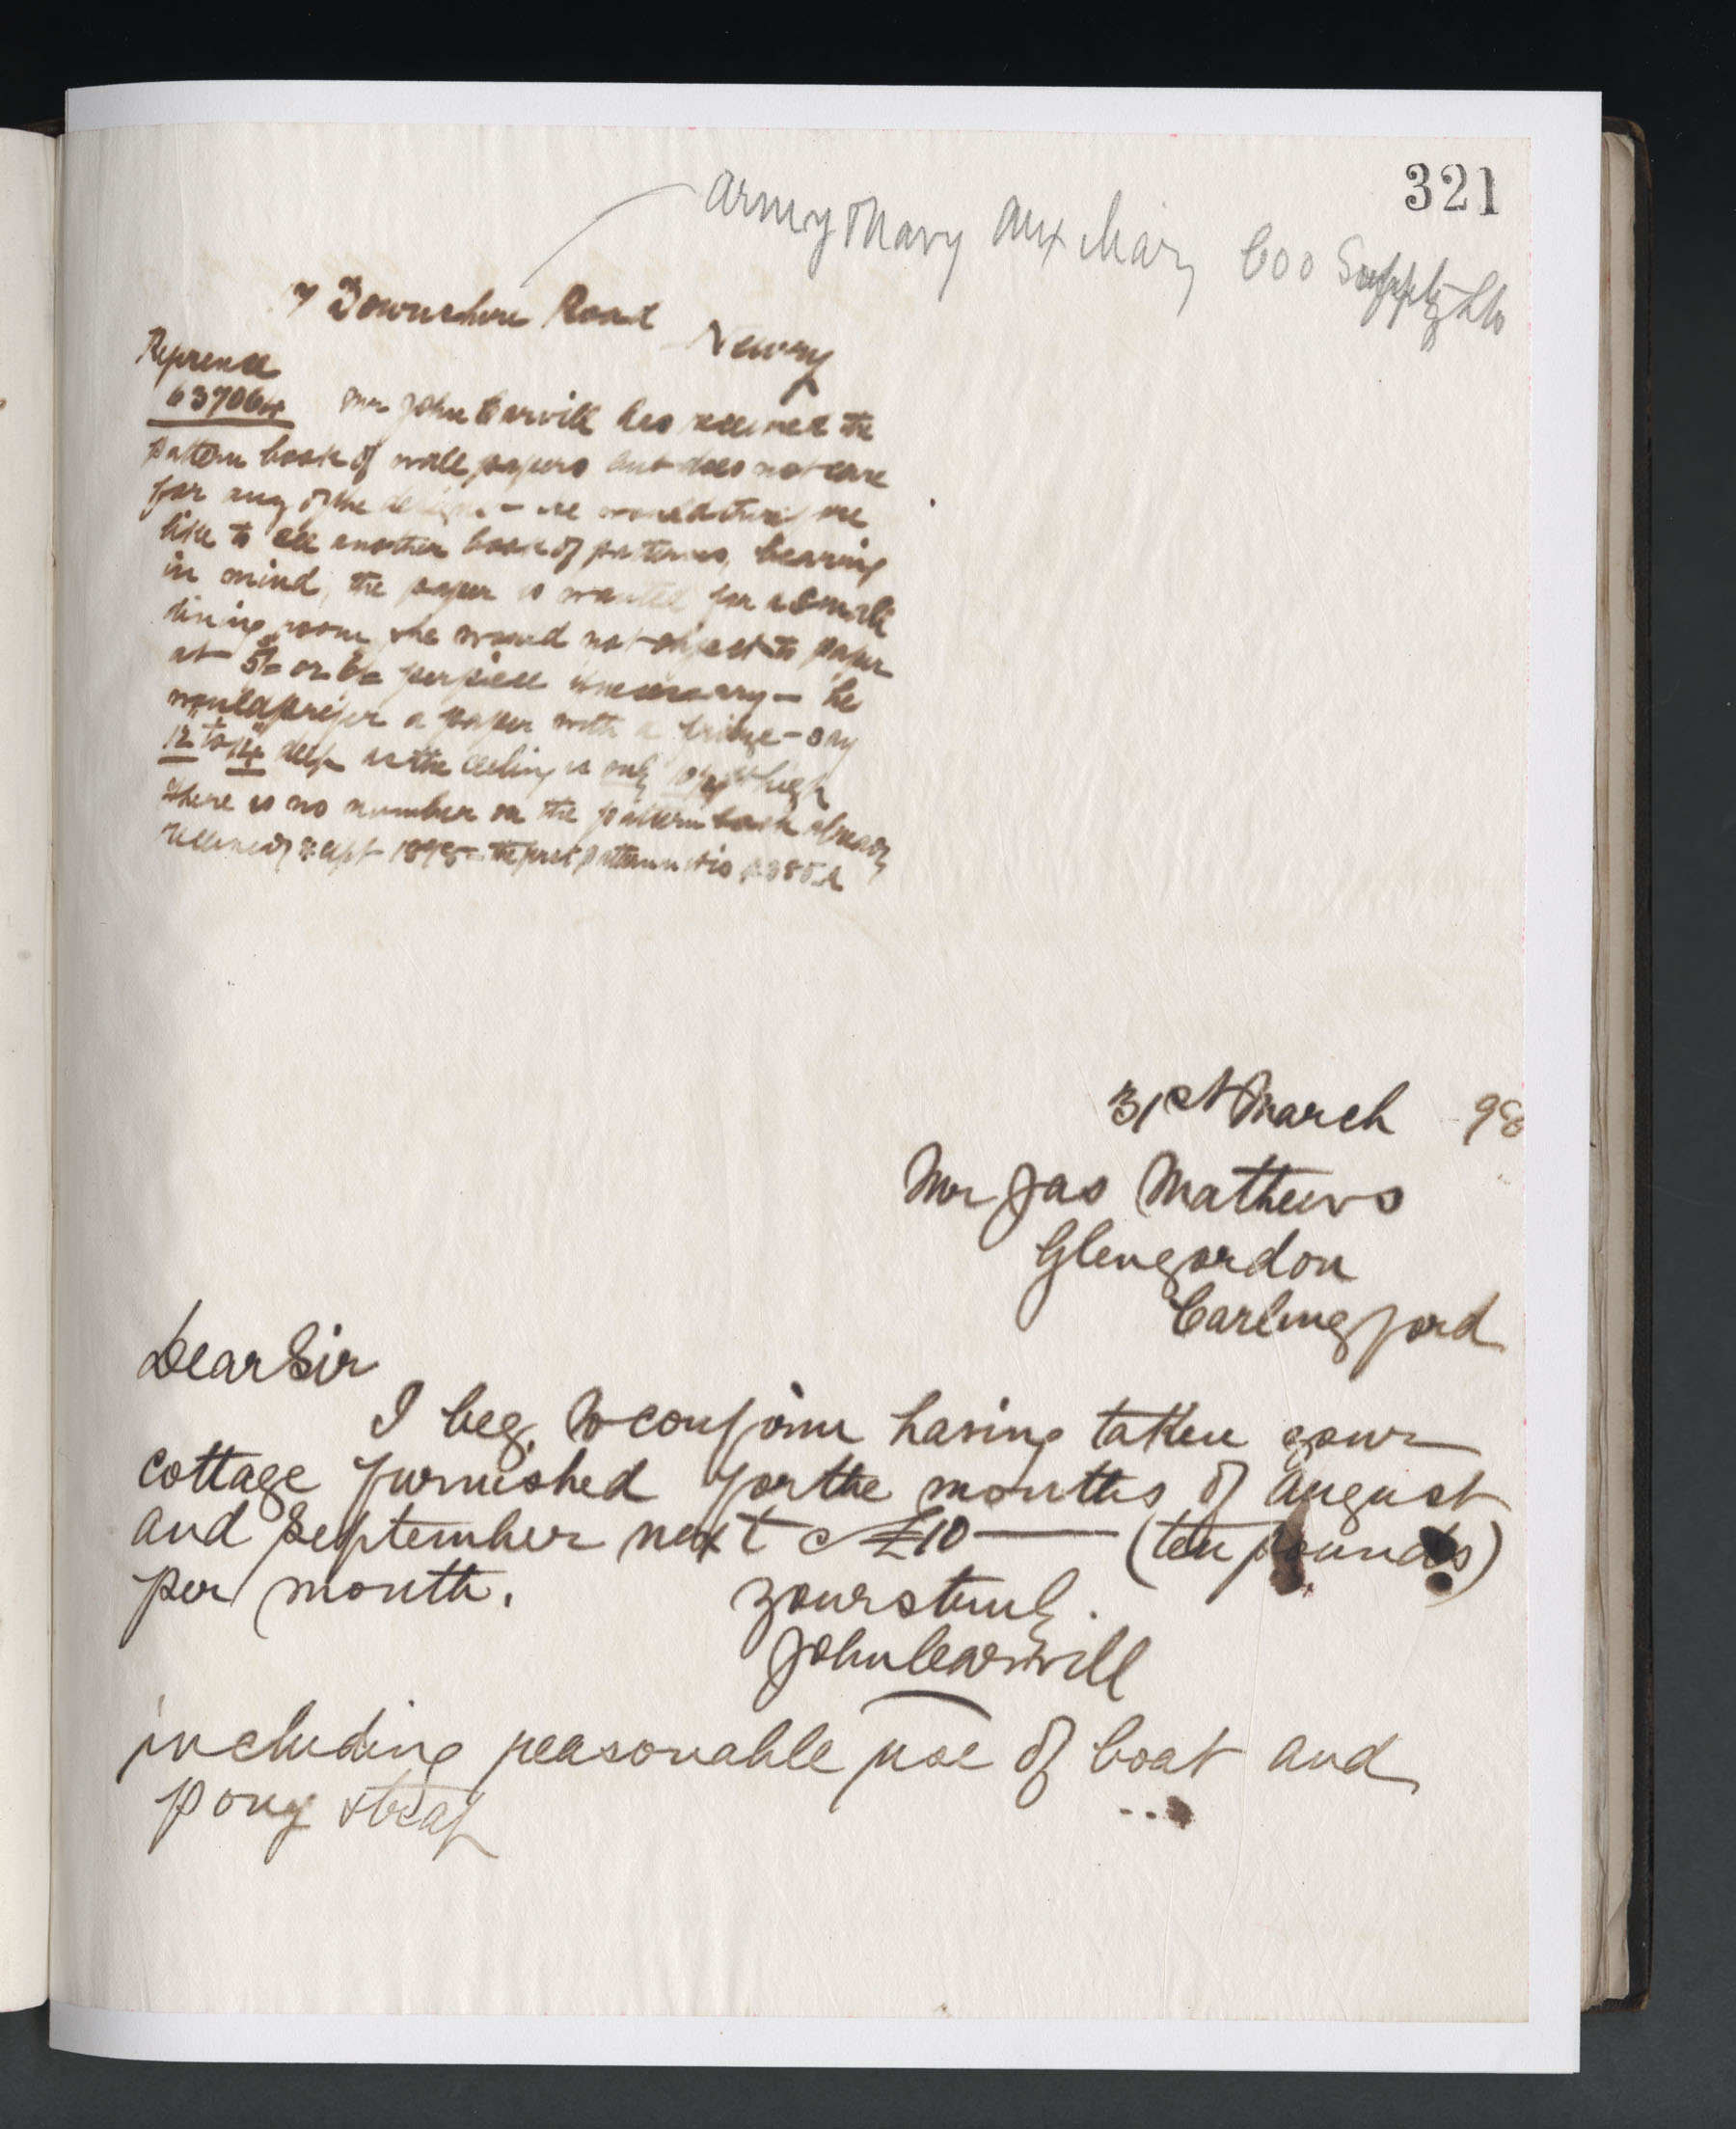 321
Army & Navy Auxiliary Coo Supply Ltd
7 Downshire Road
Newry
Reference
637064 Mr John Carvill has received the
pattern book of wall papers but does not care
for any of the designs - he would therefore
like to see another book of patterns, bearing
in mind, the paper is wanted for a small
dining room, he would not object to paper
at 5/= or 6/= per piece if necessary - he
would prefer a paper with a frieze - say
12" to 14" deep as the ceiling is only high
There is no number on the pattern book already
received Sept 1898 - the first pattern in it is
31st March 98
Mr Jas Mathews
Glengordon
Carlingford
Dear Sir
I beg to confirm having taken your
cottage furnished for the months of August
and September next @ £10 — (ten pounds)
per month.
Yours truly.
John Carvill
including reasonable use of boat and
pony & trap